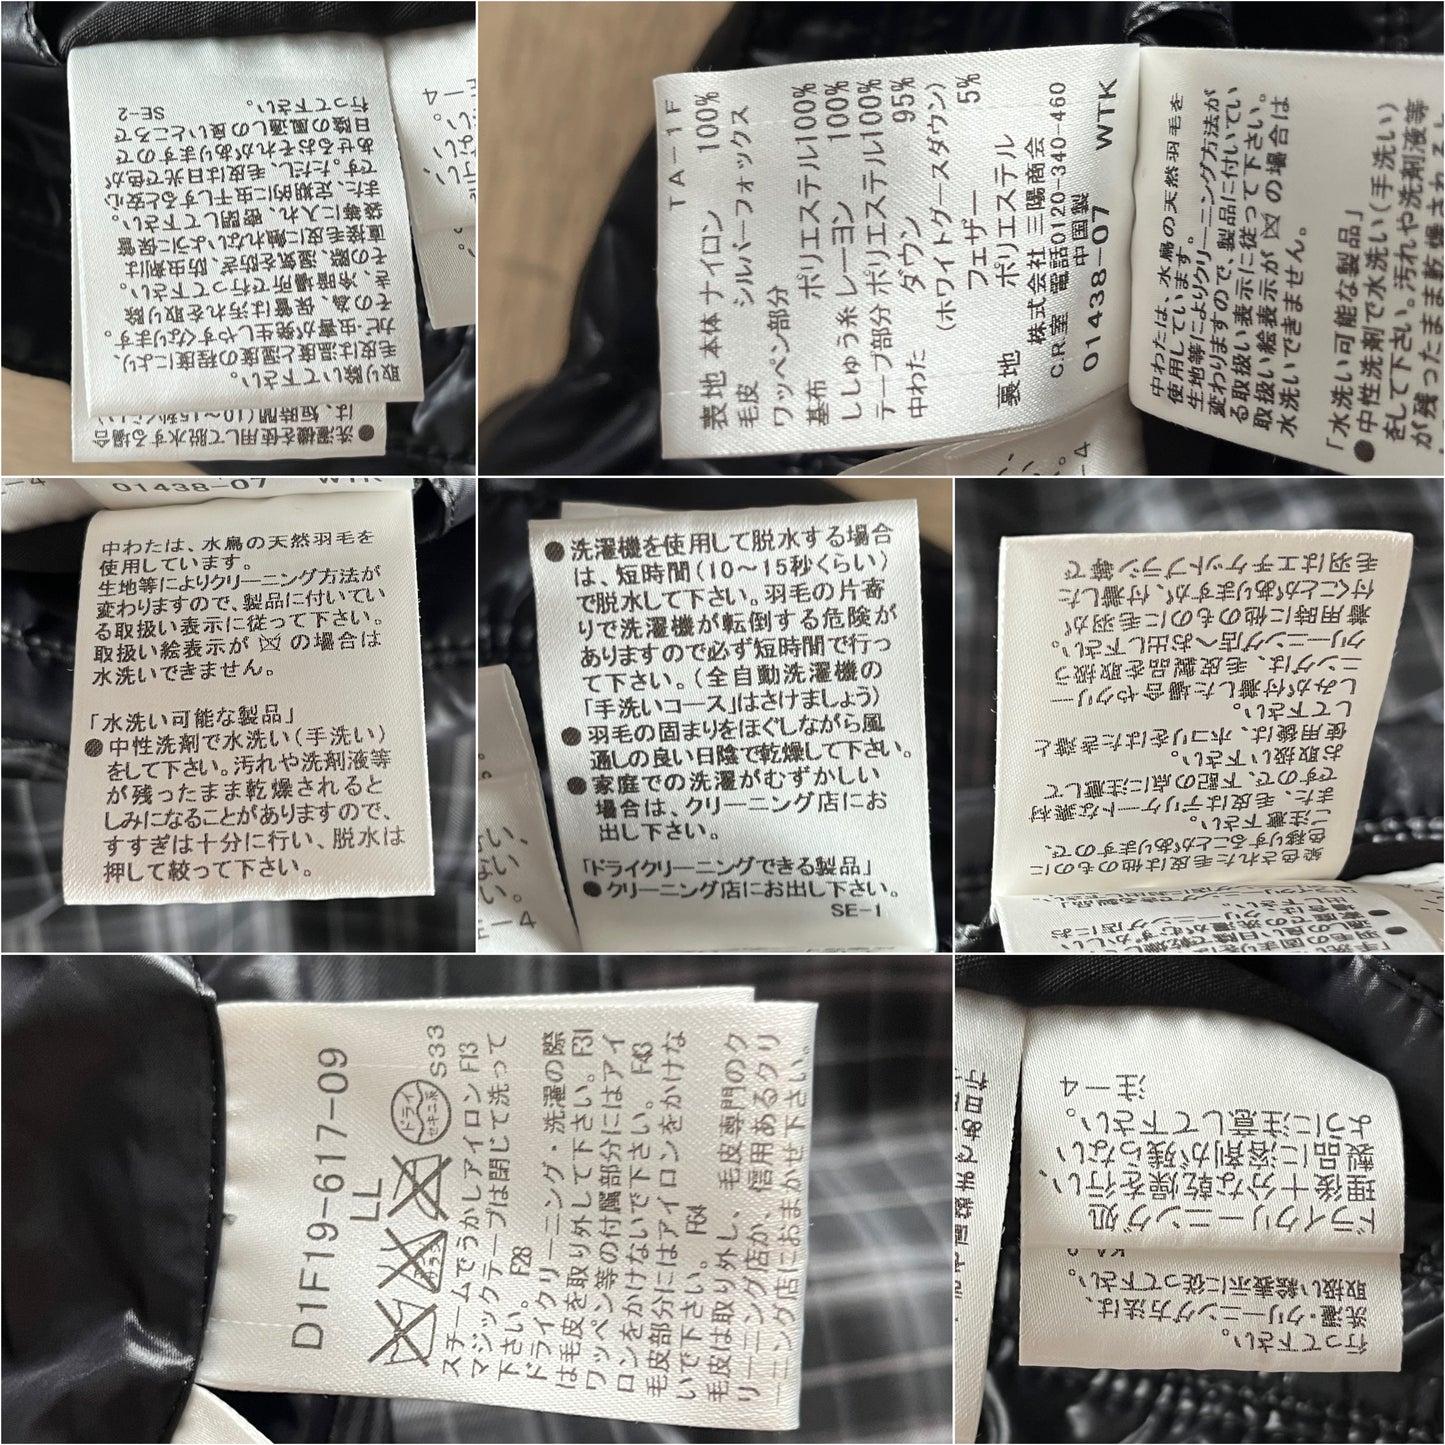 取り除いて下さい。
毛皮は温度と湿度の程度により、
カビ・虫害が発生しやすくなります。
その為、保管は汚れを取り除
き、冷暗場所で行って下さい。
その際、湿気を防ぎ、防虫剤は
直接毛皮に触れないように保管
袋等に入れ、密閉して下さい。
また、定期的に虫干しすると安心
です。ただし、毛皮は日光で色が
あせるおそれがありますので
日陰の風通しの良いところで
行って下さい。
SE-2
●洗濯機を使用して脱水する場合
は、短時間(10〜15秒くらい)
TA-1F
表地 本体 ナイロン 100%
毛皮 シルバーフォックス
ワッペン部分
基布 ポリエステル100%
ししゅう糸 レーヨン 100%
テープ部分 ポリエステル100%
中わた ダウン 95%
(ホワイトグースダウン)
フェザー 5%
裏地 ポリエステル
株式会社 三陽商会
C.R.室 電話0120-340-460
中国製
01438-07 WTK
中わたは、水鳥の天然羽毛を
使用しています。
生地等によりクリーニング方法が
変わりますので、製品に付いてい
る取扱い表示に従って下さい。
取扱い絵表示が の場合は
水洗いできません。
「水洗い可能な製品」
●中性洗剤で水洗い(手洗い)
をして下さい。汚れや洗剤液等
が残ったまま乾燥されると
01438-07 WTK
中わたは、水鳥の天然羽毛を
使用しています。
生地等によりクリーニング方法が
変わりますので、製品に付いてい
る取扱い表示に従って下さい。
取扱い絵表示が の場合は
水洗いできません。
「水洗い可能な製品」
●中性洗剤で水洗い(手洗い)
をして下さい。汚れや洗剤液等
が残ったまま乾燥されると
しみになることがありますので、
すすぎは十分に行い、脱水は
押して絞って下さい。
●洗濯機を使用して脱水する場合
は、短時間(10〜15秒くらい)
で脱水して下さい。羽毛の片寄
りで洗濯機が転倒する危険が
ありますので必ず短時間で行っ
て下さい。(全自動洗濯機の
「手洗いコース」はさけましょう)
●羽毛の固まりをほぐしながら風
通しの良い日陰で乾燥して下さい。
●家庭での洗濯がむずかしい
場合は、クリーニング店にお
出し下さい。
「ドライクリーニングできる製品」
●クリーニング店にお出し下さい。
SE-1
染色された毛皮は他のものに
色移りすることがありますので、
ご注意下さい。
また、毛皮はデリケートな素材
ですので、下記の点に注意して
お取扱い下さい。
使用後は、ホコリをはたき落と
して下さい。
しみが付着した場合やクリー
ニングは、毛皮製品を取扱う
クリーニング店へお出し下さい。
着用時に他のものに毛羽が
付くことがありますが、付着した
毛羽はエチケットブラシ等で
D1F19-617-09
LL
ドライ
セキユ系
エンソサラシ
S33
スチームでうかしアイロン F13
マジックテープは閉じて洗って
下さい。 F28
ドライクリーニング・洗濯の際
は毛皮を取り外して下さい。F31
ワッペン等の付属部分にはアイ
ロンをかけないで下さい。 F43
毛皮部分にはアイロンをかけな
いで下さい。 F64
毛皮は取り外し、毛皮専門のク
リーニング店か、信用あるクリ
ーニング店におまかせ下さい。
ドライクリーニング処
理後十分な乾燥を行い、
製品に溶剤が残らない
ように注意して下さい。
注-4
行って下さい。
洗濯・クリーニング方法は、
取扱い絵表示に従って下さい。